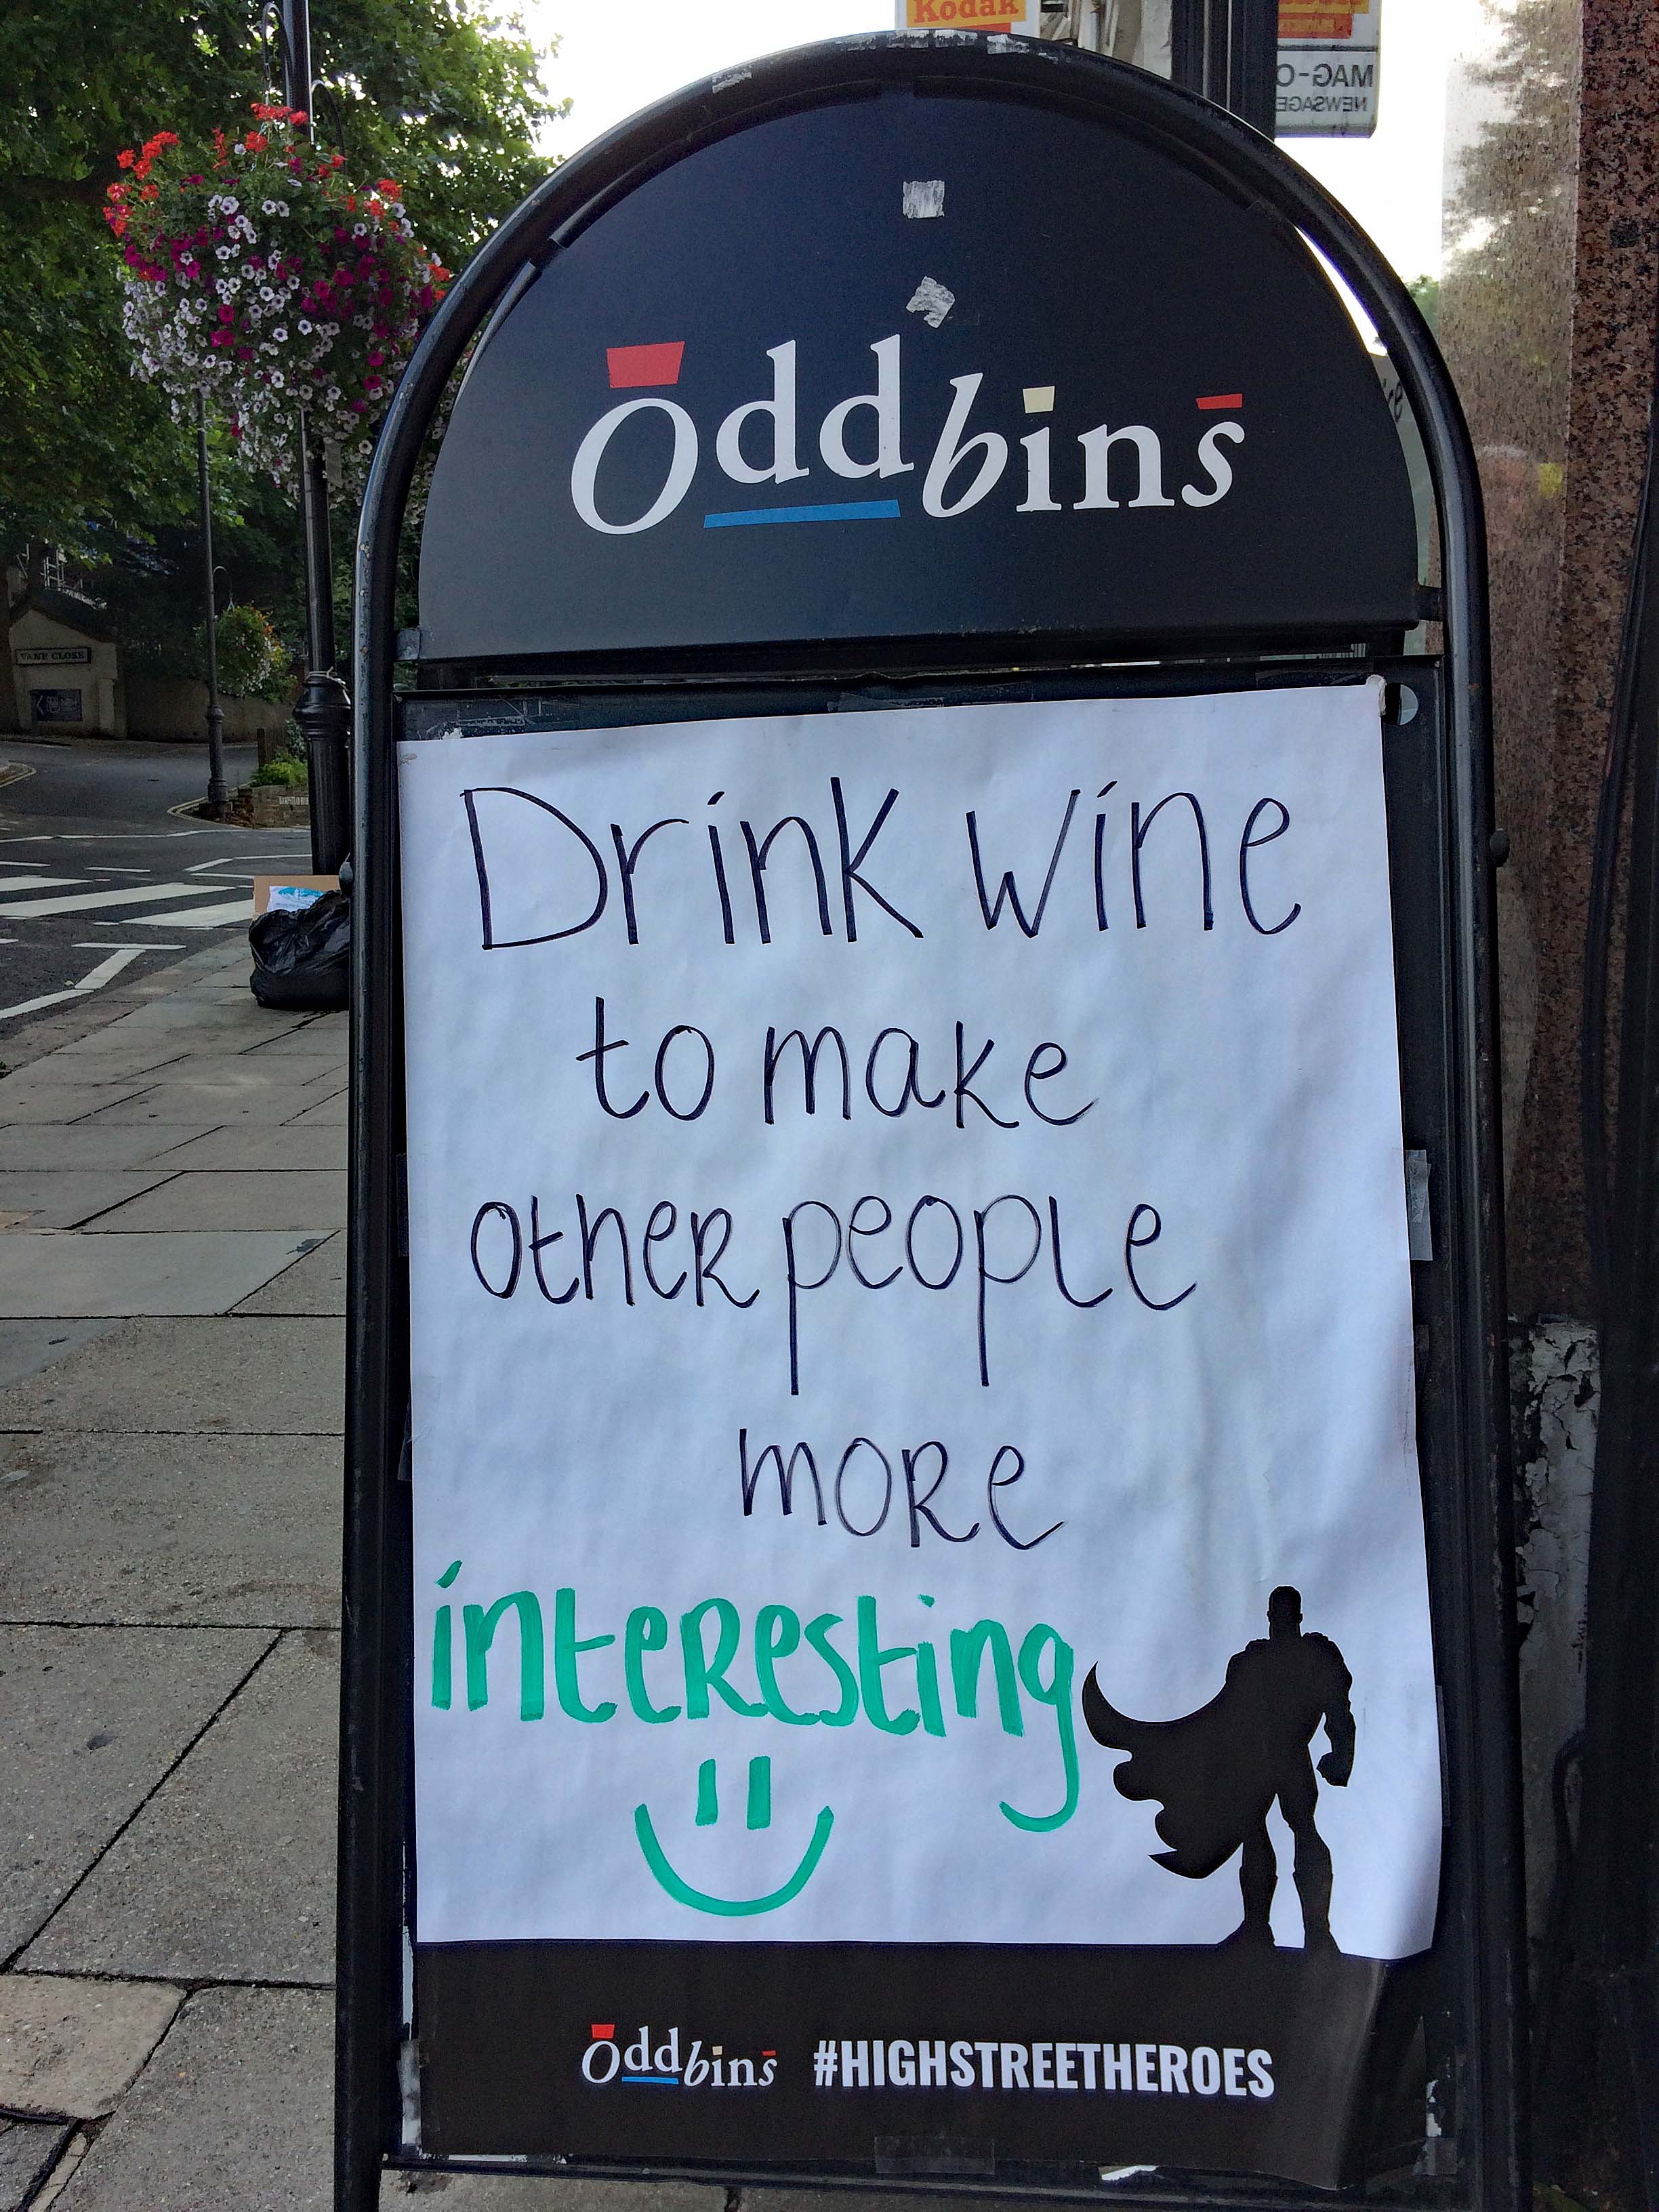 Kodak
MAG-O
NEWSAGE
Oddbins
VANE CLOSE
Drink wine
to make
other people
more
interesting
Oddbins #HIGHSTREETHEROES